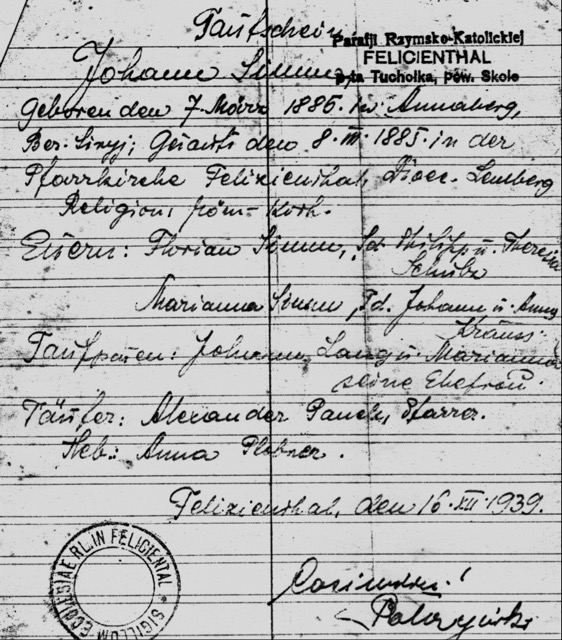 Taufschein
Parafji Rzymsko-Katolickiej
FELICIENTHAL
p-ta Tucholka, pow. Skole
Johann Simm,
Geboren den 7. März 1885. in Annaberg,
Bez. Stryj; Getauft den 8. III. 1885. in der
Pfarrkirche Felizienthal, Dioec. Lemberg
Religion: röm.-kath.
Eltern: Florian Simm, Sd. Philipp u. Theresia
Marianna Simm, Td. Johann u. Anna
Krauss.
Taufpaten: Johann Lang u. Marianna
seine Ehefrau.
Täufer: Alexander Panek, Pfarrer.
Heb.: Anna Plobner.
Felizienthal, den 16. XII. 1939.
SIGILLUM ECCLESIAE RL. IN FELICIENTAL